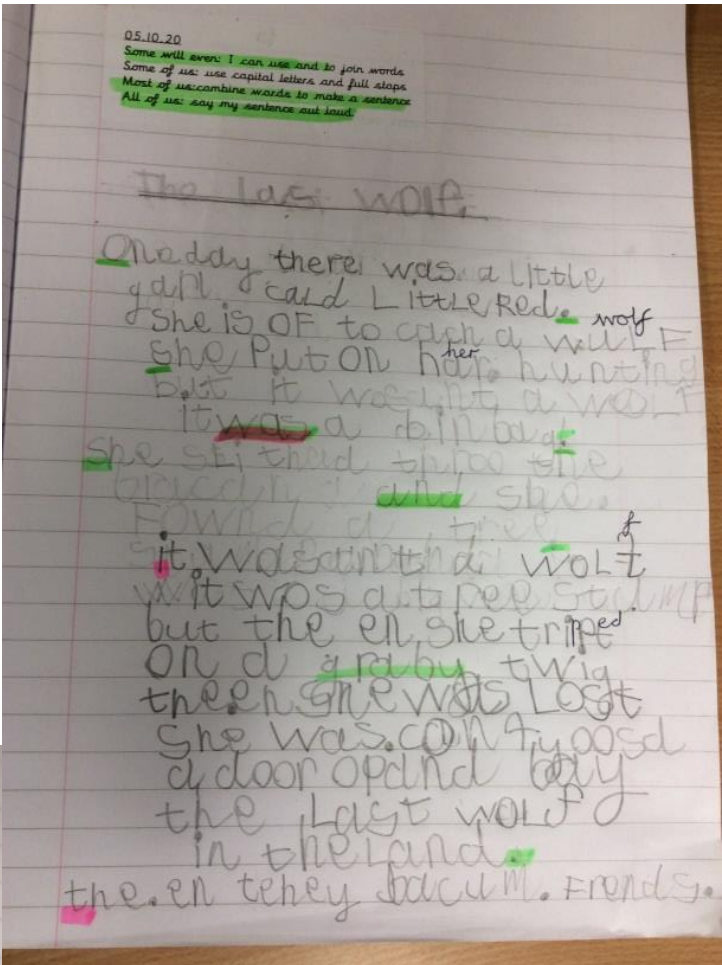 05.10.20
Some will even: I can use and to join words
Some of us: use capital letters and full stops
Most of us:combine words to make a sentence
All of us: say my sentence out loud.
The Last Wolf.
Onaddy there was a Little
garl cald LittleRed.
She is OF to cach a wulF wolf
She Put On har her hunting
but it wasint a WOLF
it was a binbag.
She
and she.
Fownd a tree
it. wasint a WOLf f
it wos a tree stump
but the en she tripped
On a graby twig
then she was Lost
She was.confyoosd
a door opand bay
the Last wolf
in the Land.
the.en tehey bacum. Frends.